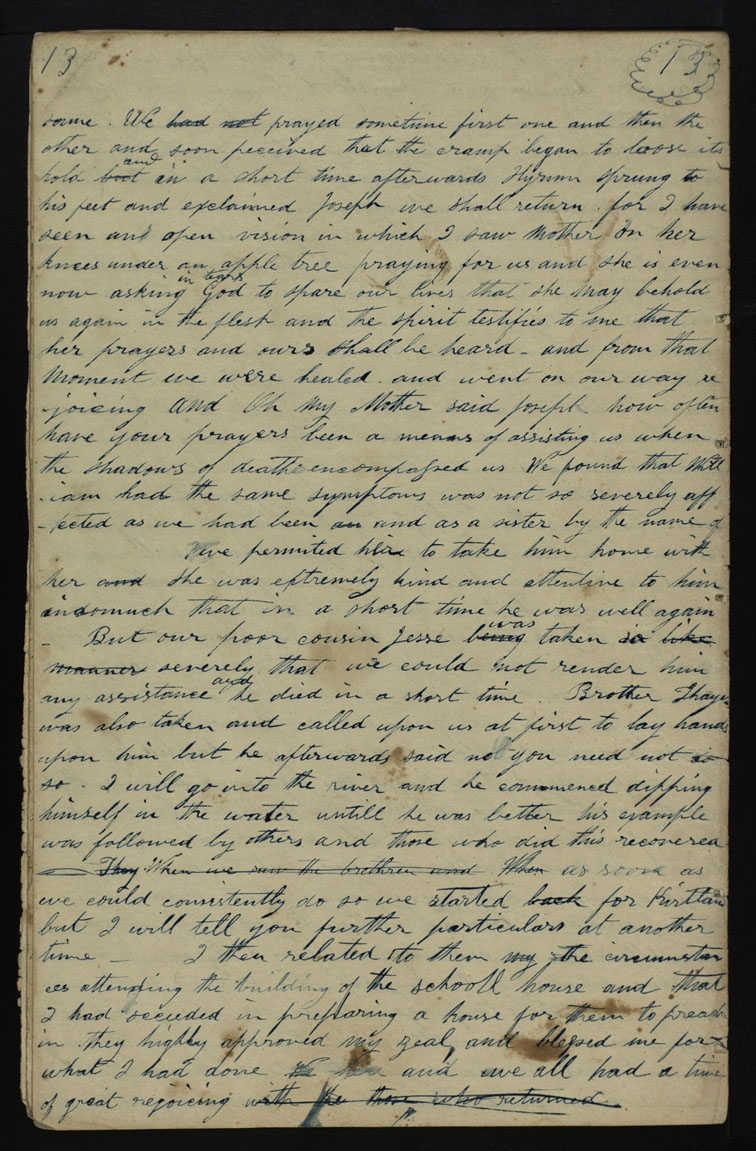 13 13
same. We had not prayed sometime first one and then the
other and soon peceived that the cramp began to loose its
hold but and in a short time afterwards Hyrum sprung to
his feet and exclaimed Joseph we shall return. for I have
seen and open vision in which I saw Mother on her
knees under an apple tree praying for us and she is even
now asking in tears God to spare our lives that she may behold
us again in the flesh and the spirit testifies to me that
her prayers and ours shall be heard - and from that
Moment we were healed. and went on our way re
-joicing and Oh my Mother said Joseph how often
have your prayers been a means of assisting us when
the shadows of death encompassed us We found that Will
-iam had the same symptoms was not so severely aff
-fected as we had been an and as a sister by the name of
we permited her to take him home with
her and she was extremely kind and attentive to him
insomuch that in a short time he was well again
- But our poor cousin Jesse being was taken in like
manner severely that we could not render him
any assistance and he died in a short time. Brother Thayer
was also taken and called upon us at first to lay hands
upon him but he afterwards said no you need not do
so - I will go into the river and he commenced dipping
himself in the water untill he was better his example
was followed by others and those who did this recovered
They When we saw the brethren and When as soon as
we could consistently do so we started back for Kirtland
but I will tell you further particulars at another
time - I then related to them my the circumstan
ces attending the building of the schooll house and that
I had succeded in preparing a house for them to preach
in. they highly approved my zeal and blessed me for
what I had done and we all had a time
of great rejoicing with the those who returned.